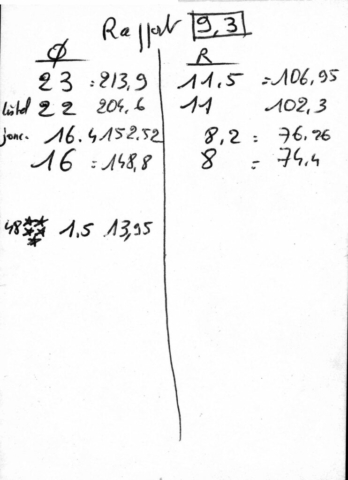 Rapport 9,3
Ø R
23 = 213,9 11,5 = 106,95
listel 22 204,6 11 102,3
jonc. 16.4 152.52 8,2 = 76.26
16 = 148,8 8 = 74,4
48 1.5 13,95